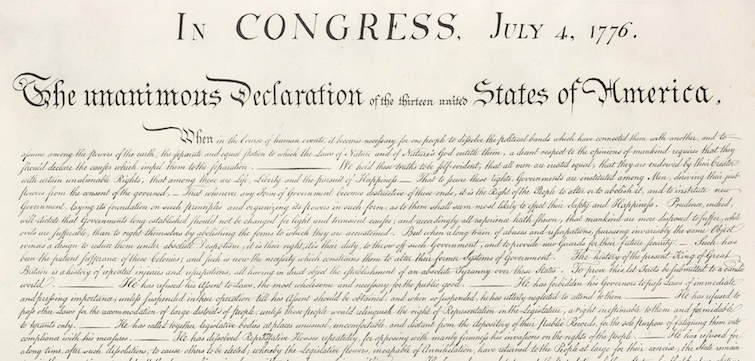 In CONGRESS, July 4, 1776.
The unanimous Declaration of the thirteen united States of America,
When in the Course of human events, it becomes necessary for one people to dissolve the political bands which have connected them with another, and to
assume among the powers of the earth, the separate and equal station to which the Laws of Nature and of Nature's God entitle them, a decent respect to the opinions of mankind requires that they
should declare the causes which impel them to the separation. — We hold these truths to be self-evident, that all men are created equal, that they are endowed by their Creator
with certain unalienable Rights, that among these are Life, Liberty and the pursuit of Happiness. — That to secure these rights, Governments are instituted among Men, deriving their just
powers from the consent of the governed, — That whenever any Form of Government becomes destructive of these ends, it is the Right of the People to alter or to abolish it, and to institute new
Government, laying its foundation on such principles and organizing its powers in such form, as to them shall seem most likely to effect their Safety and Happiness. Prudence, indeed,
will dictate that Governments long established should not be changed for light and transient causes; and accordingly all experience hath shewn, that mankind are more disposed to suffer, while
evils are sufferable, than to right themselves by abolishing the forms to which they are accustomed. But when a long train of abuses and usurpations, pursuing invariably the same Object
evinces a design to reduce them under absolute Despotism, it is their right, it is their duty, to throw off such Government, and to provide new Guards for their future security. — Such has
been the patient sufferance of these Colonies; and such is now the necessity which constrains them to alter their former Systems of Government. The history of the present King of Great
Britain is a history of repeated injuries and usurpations, all having in direct object the establishment of an absolute Tyranny over these States. To prove this, let Facts be submitted to a candid
world. — He has refused his Assent to Laws, the most wholesome and necessary for the public good. — He has forbidden his Governors to pass Laws of immediate
and pressing importance, unless suspended in their operation till his Assent should be obtained; and when so suspended, he has utterly neglected to attend to them. — He has refused to
pass other Laws for the accommodation of large districts of people, unless those people would relinquish the right of Representation in the Legislature, a right inestimable to them and formidable
to tyrants only. — He has called together legislative bodies at places unusual, uncomfortable, and distant from the depository of their Public Records, for the sole purpose of fatiguing them into
compliance with his measures. — He has dissolved Representative Houses repeatedly, for opposing with manly firmness his invasions on the rights of the people. — He has refused for
a long time, after such dissolutions, to cause others to be elected; whereby the Legislative powers, incapable of Annihilation, have returned to the People at large for their exercise; the State remain